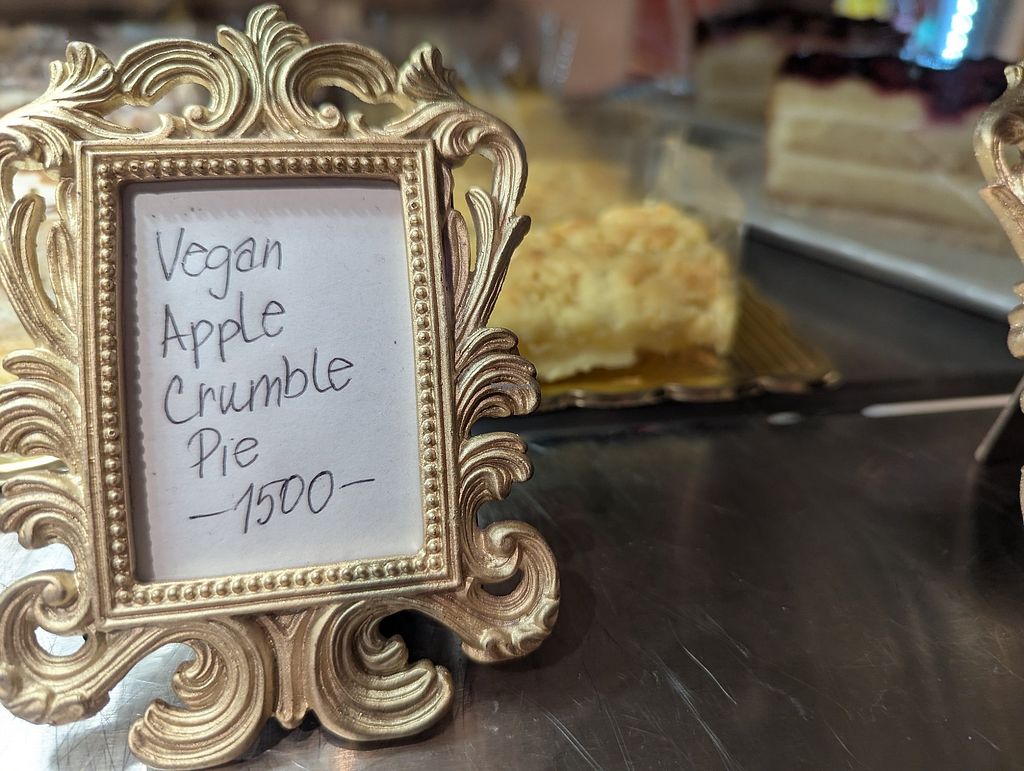 Vegan
Apple
Crumble
Pie
-1500-